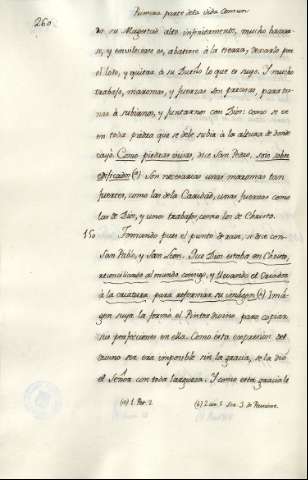 Primera parte de la Vida Comun
260
do su Magestad alto infinitamente, mucho hacerse,
y envilecerse es, abatirse à la tierra, dexarlo por
el lodo, y quitar à su Dueño lo que es suyo. Y mucho
trabajo, maromas, y fuerzas son precisas, para tor-
nar à subirnos, y juntarnos con Dios: como se ve
en toda piedra que se debe subir à la altura de donde
cayò. Como piedras vivas, dice San Pedro, sois sobre-
edificados (a) Son necesarias unas maromas tan
fuertes, como las de la Caridad, unas fuerzas como
las de Dios, y unos trabajos como los de Christo.
15 Tomando pues el punto de raiz, se dice con
San Pablo, y San Leon. Que Dios estaba en Christo,
reconciliando al mundo consigo, y llevando el Criador
à la criatura para reformar su imagen (b) Ima-
gen suya la formò el Pintor Divino para copiar
sus perfecciones en ella. Como esta expresion del
divino ser era imposible sin la gracia, se la diò
el Señor con toda largueza. Y como esta gracia le
(a) 1. Pet. 2. (b) 2. Cor. 5